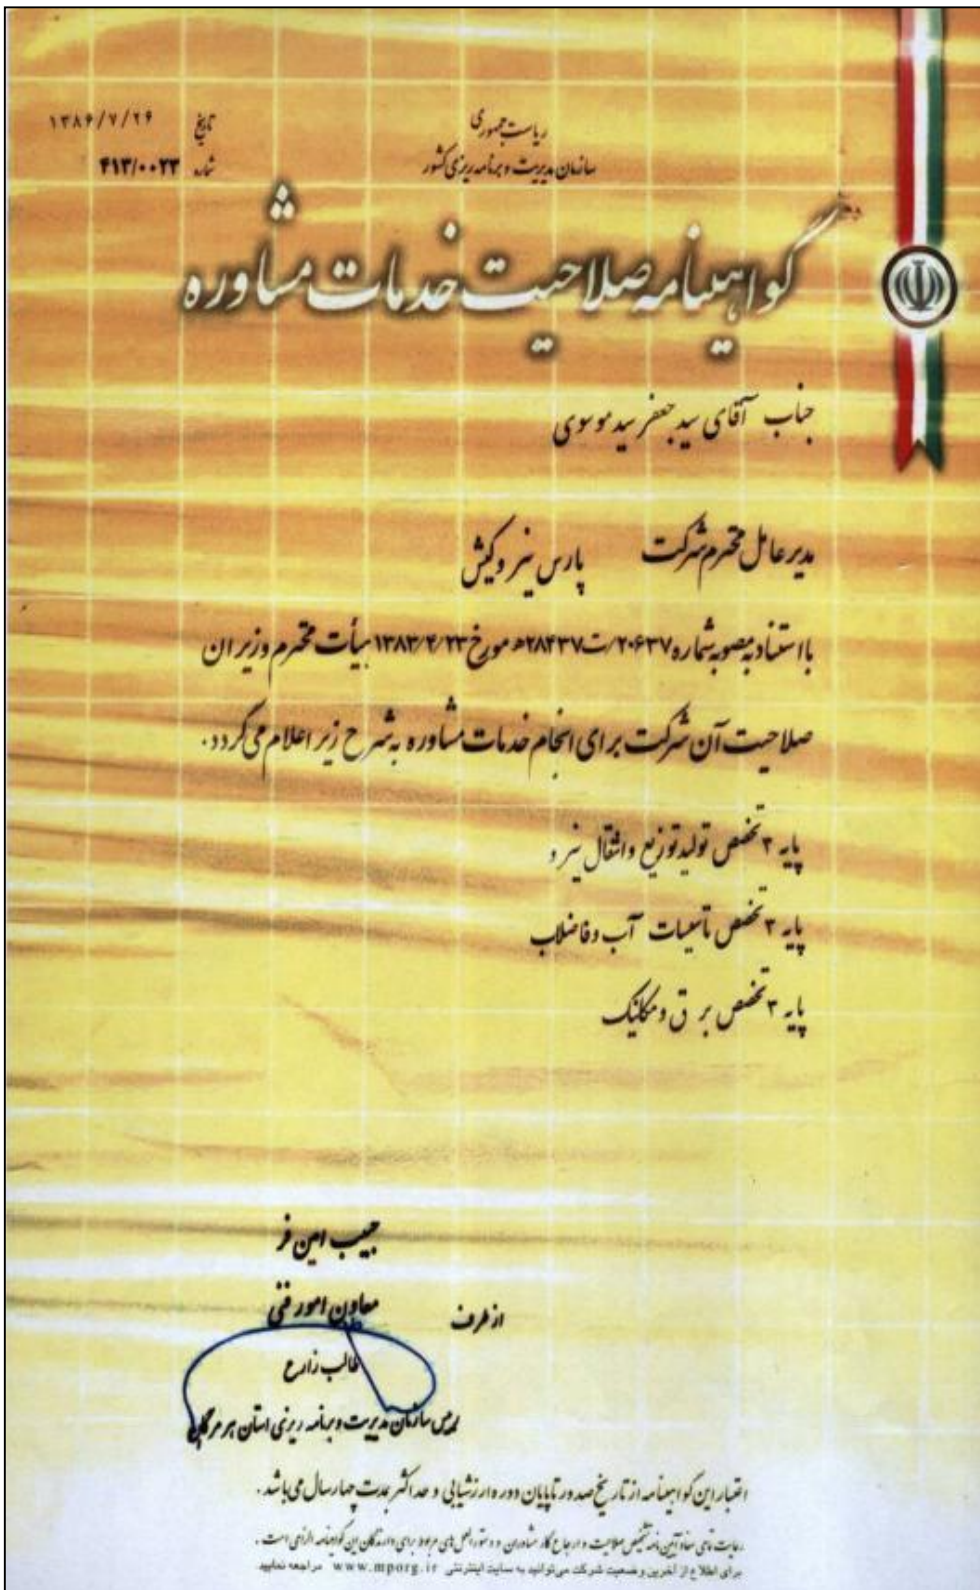 ریاست جمهوری
سازمان مدیریت و برنامه ریزی کشور
تاریخ ۱۳۸۶/۷/۲۶
شماره ۴۱۳/۰۰۲۳
گواهینامه صلاحیت خدمات مشاوره
جناب آقای سید جعفر سید موسوی
مدیر عامل محترم شرکت پارس نیرو کیش
با استناد به مصوبه شماره ۲۰۶۳۷/ت۲۸۴۳۷ه مورخ ۱۳۸۳/۴/۲۳ هیأت محترم وزیران
صلاحیت آن شرکت برای انجام خدمات مشاوره به شرح زیر اعلام می گردد.
پایه ۳ تخصص تولید توزیع و انتقال نیرو
پایه ۳ تخصص تاسیسات آب و فاضلاب
پایه ۳ تخصص برق و مکانیک
حبیب امین فر
معاون امور فنی
از طرف
طالب زارع
رئیس سازمان مدیریت و برنامه ریزی استان هرمزگان
اعتبار این گواهینامه از تاریخ صدور تا پایان دوره ارزشیابی و حداکثر بمدت چهار سال می باشد.
رعایت تمامی مفاد آیین نامه تشخیص صلاحیت و ارجاع کار مشاوران و دستورالعمل های مربوط برای دارندگان این گواهینامه الزامی است.
برای اطلاع از آخرین وضعیت شرکت می‌توانید به سایت اینترنتی www.mporg.ir مراجعه نمایید